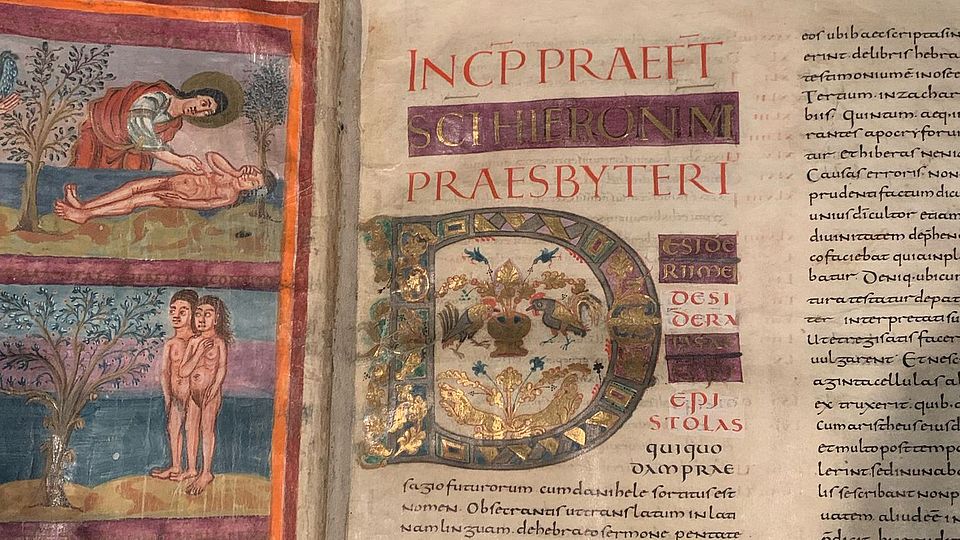 INCP PRAEFT
SCI HIERONIM
PRAESBYTERI
DESIDE
RII MEI
DESI
DERA
EPI
STOLAS
quiquo
dam prae
sagio futurorum cum danihele sortitus est
nomen. Obsecrantis ut translatum in lati
nam linguam. de hebraeo sermone pentate
eos ubi haec scripta sin
erint de libris hebra
testimonium
Tertium. in zachar
biis. Quintum. aequi
rantes apocryforum
tur et hiberas nenia
Causas erroris non
prudenti factum dicu
unius di cultor etiam
divinitatem dephen
co faciebat quia in pl
batur. Deniq. ubicum
tura testatur de pat
ter interpretatisu
Ut et regi satisfacer
vulgarent Et nesc
aginta cellulas al
ex truxerit. quib. d
Cum aristheus eiusd
et multo post tempo
lerint sed in una ba
lis se scribant non p
vatem. aliud in